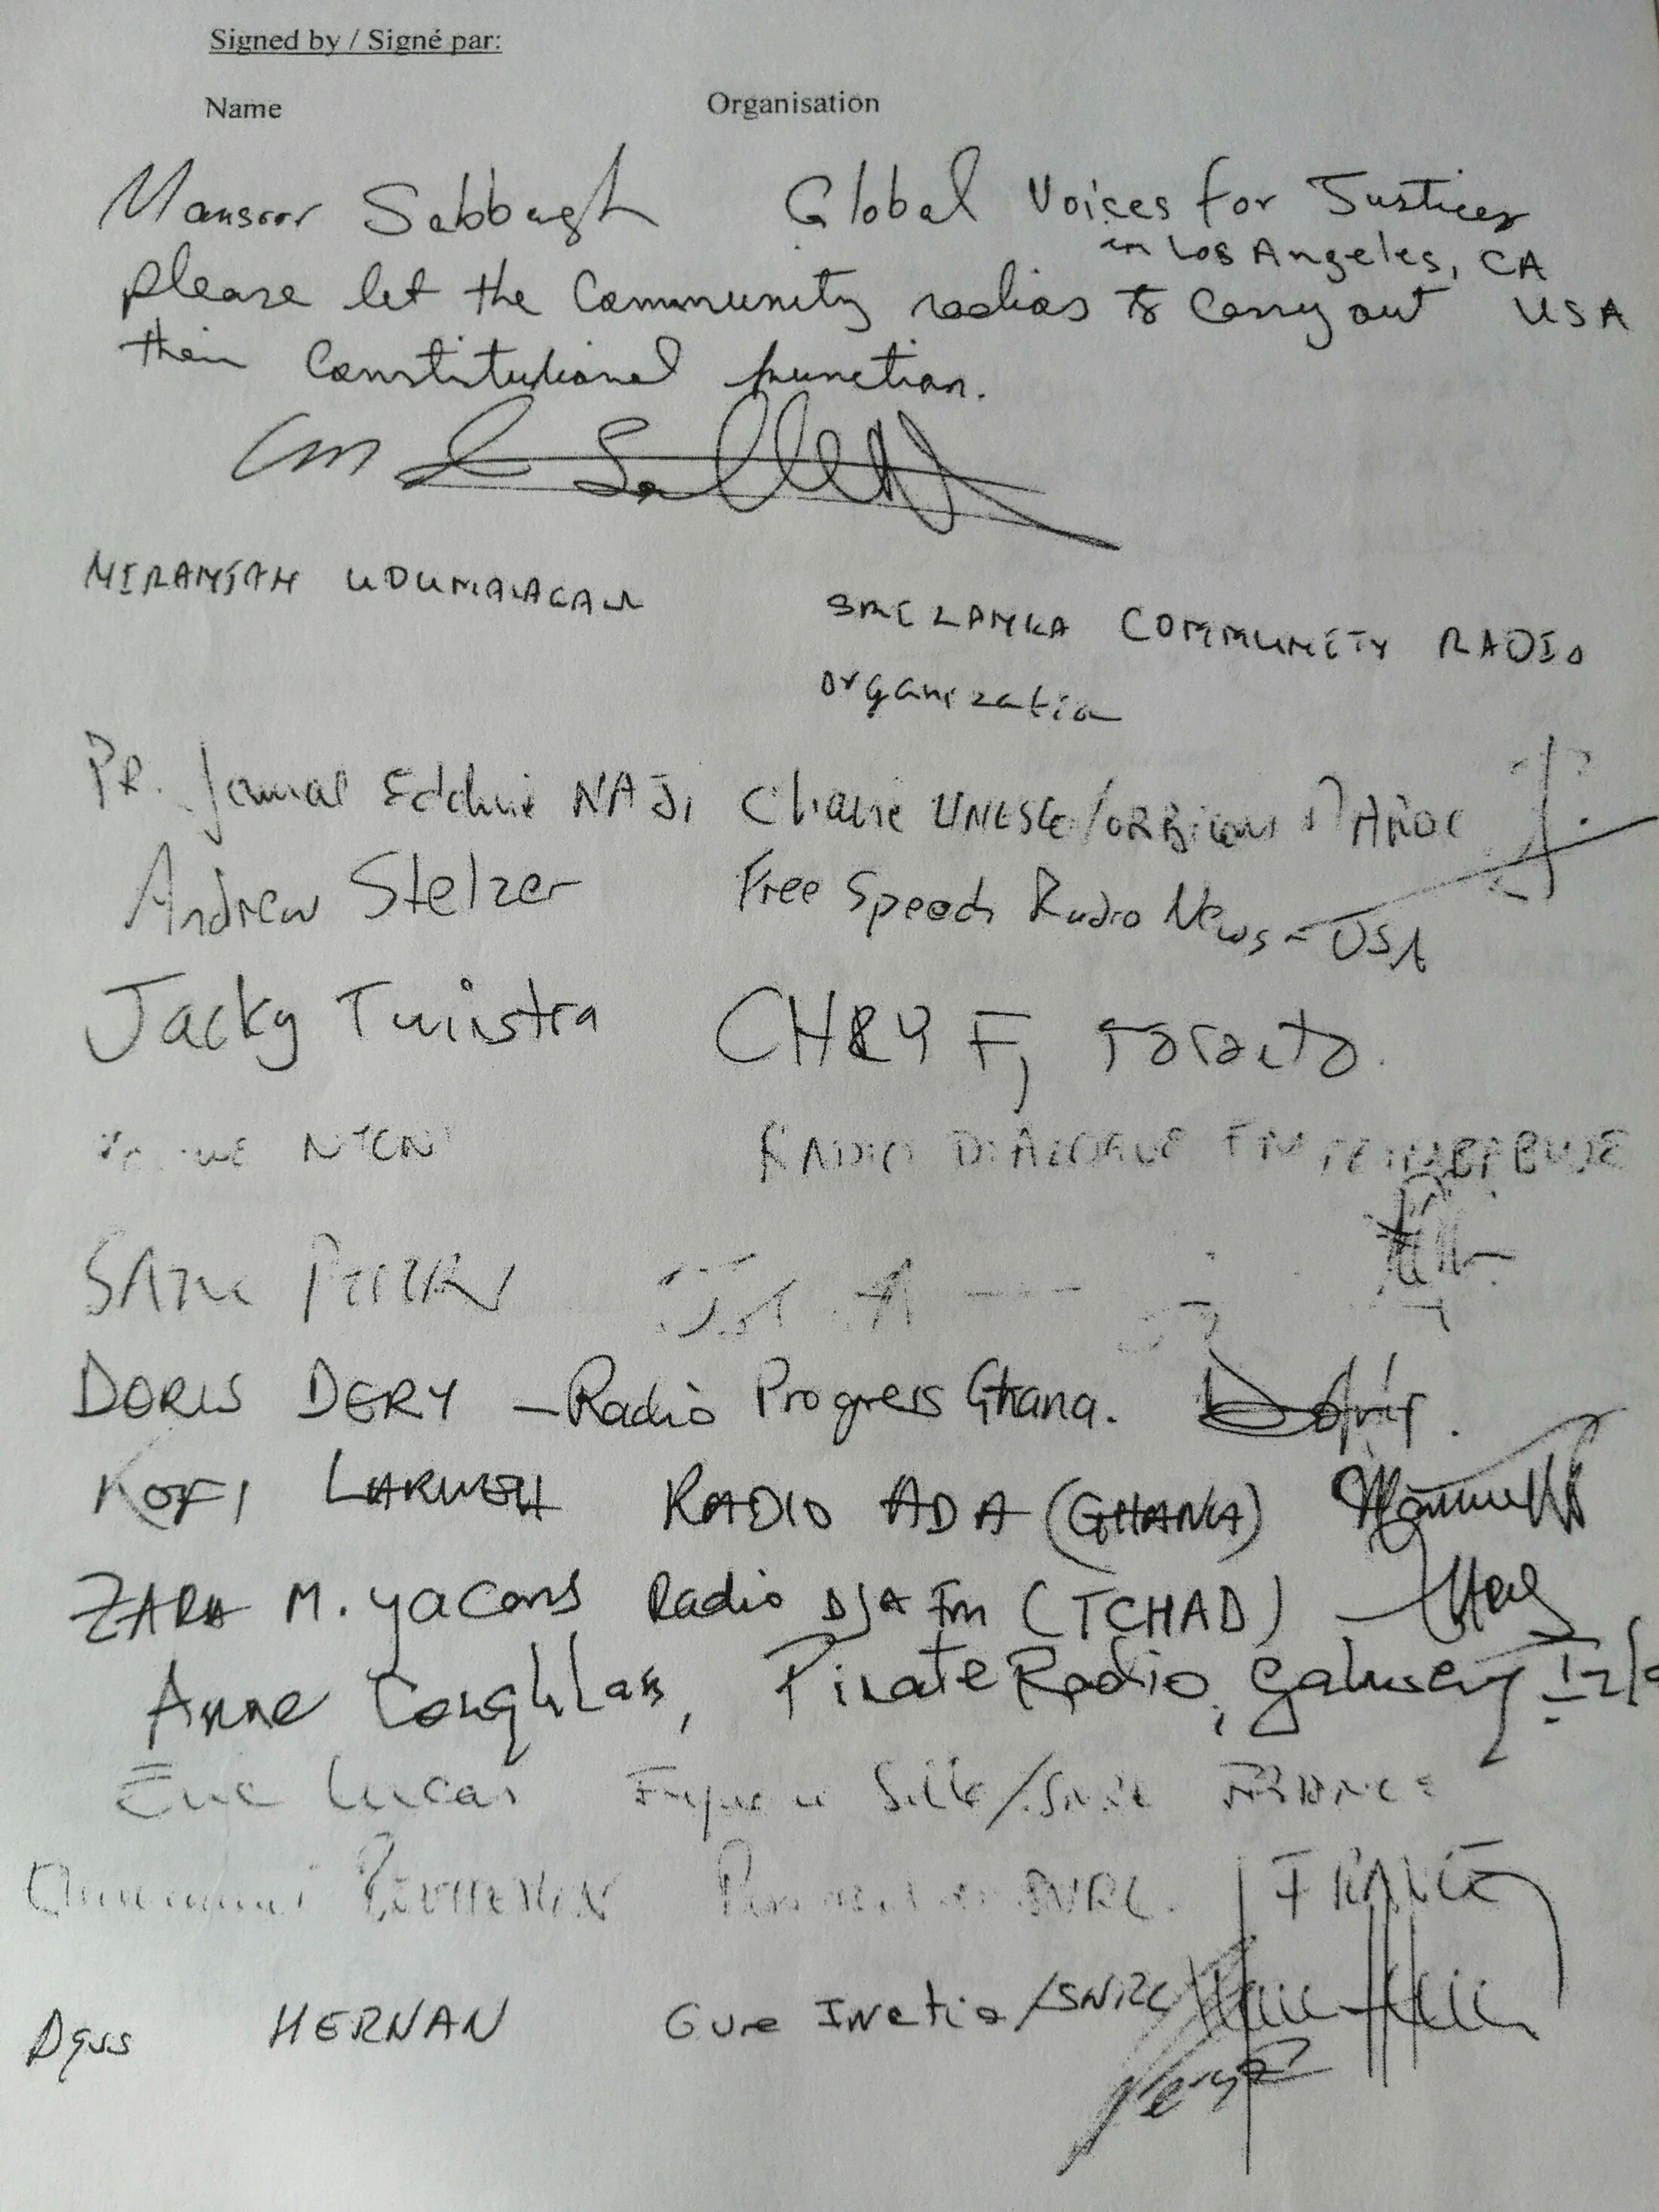 Signed by / Signé par:
Name Organisation
Mansoor Sabbagh Global Voices for Justice
in Los Angeles, CA
please let the Community radios to carry out USA
their Constitutional function.
NIRANJAN UDUMALAGALA
SRI LANKA COMMUNITY RADIO
organization
PR. Jamal Eddine NAJI Chaire UNESCO/ORBICOM MAROC
Andrew Stelzer Free Speech Radio News - USA
Jacky Tuinstra CHRY F, Toronto.
RADIO DIALOGUE FM
DORIS DERY - Radio Progress Ghana. Doris.
KOFI LARWEH RADIO ADA (GHANA)
ZARA M. yacoub Radio DJA Fm (TCHAD)
Anne Coughlan, Pirate Radio, Galway
Eric Lucas /SNRL FRANCE
SNRL. FRANCE
HERNAN Gure Irratia/SNRL